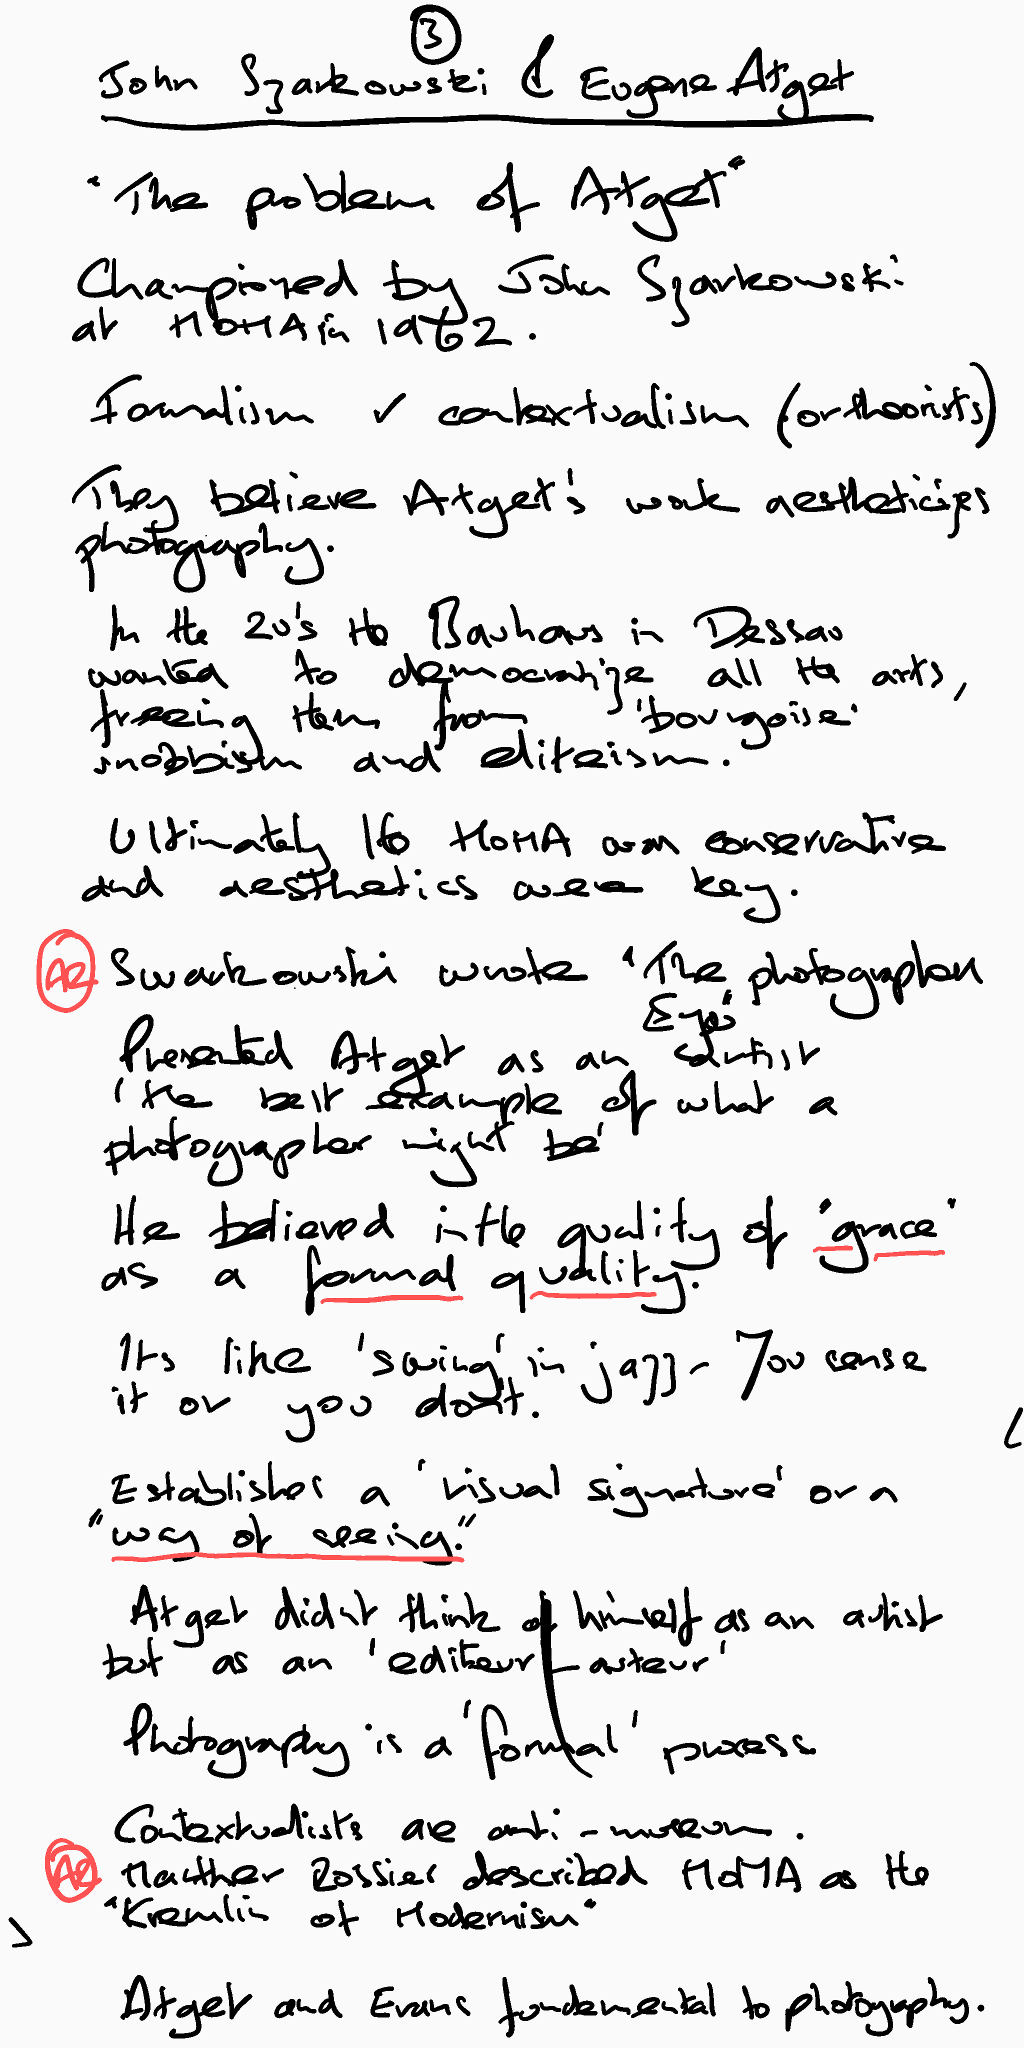 3
John Szarkowski & Eugene Atget
"The problem of Atget"
Championed by John Szarkowski
at MOMA in 1962.
Formalism v contextualism (or theorists)
They believe Atget's work aestheticizes
photography.
In the 20's the Bauhaus in Dessau
wanted to democratize all the arts,
freeing them from 'bourgoise'
snobbism and eliteism.
Ultimately the MOMA was conservative
and aesthetics were key.
AR Swarkowski wrote "The photographers
Eye"
Presented Atget as an artist
'the best example of what a
photographer might be'
He believed in the quality of 'grace'
as a formal quality.
Its like 'swing' in jazz - You sense
it or you don't.
Establishes a 'visual signature' or a
"way of seeing."
Atget didn't think of himself as an artist
but as an 'editeur-auteur'
Photography is a 'formal' process
Contextualists are anti-museum.
AR Marther Rossler described MOMA as the
"Kremlin of Modernism"
Atget and Evans fundemental to photography.